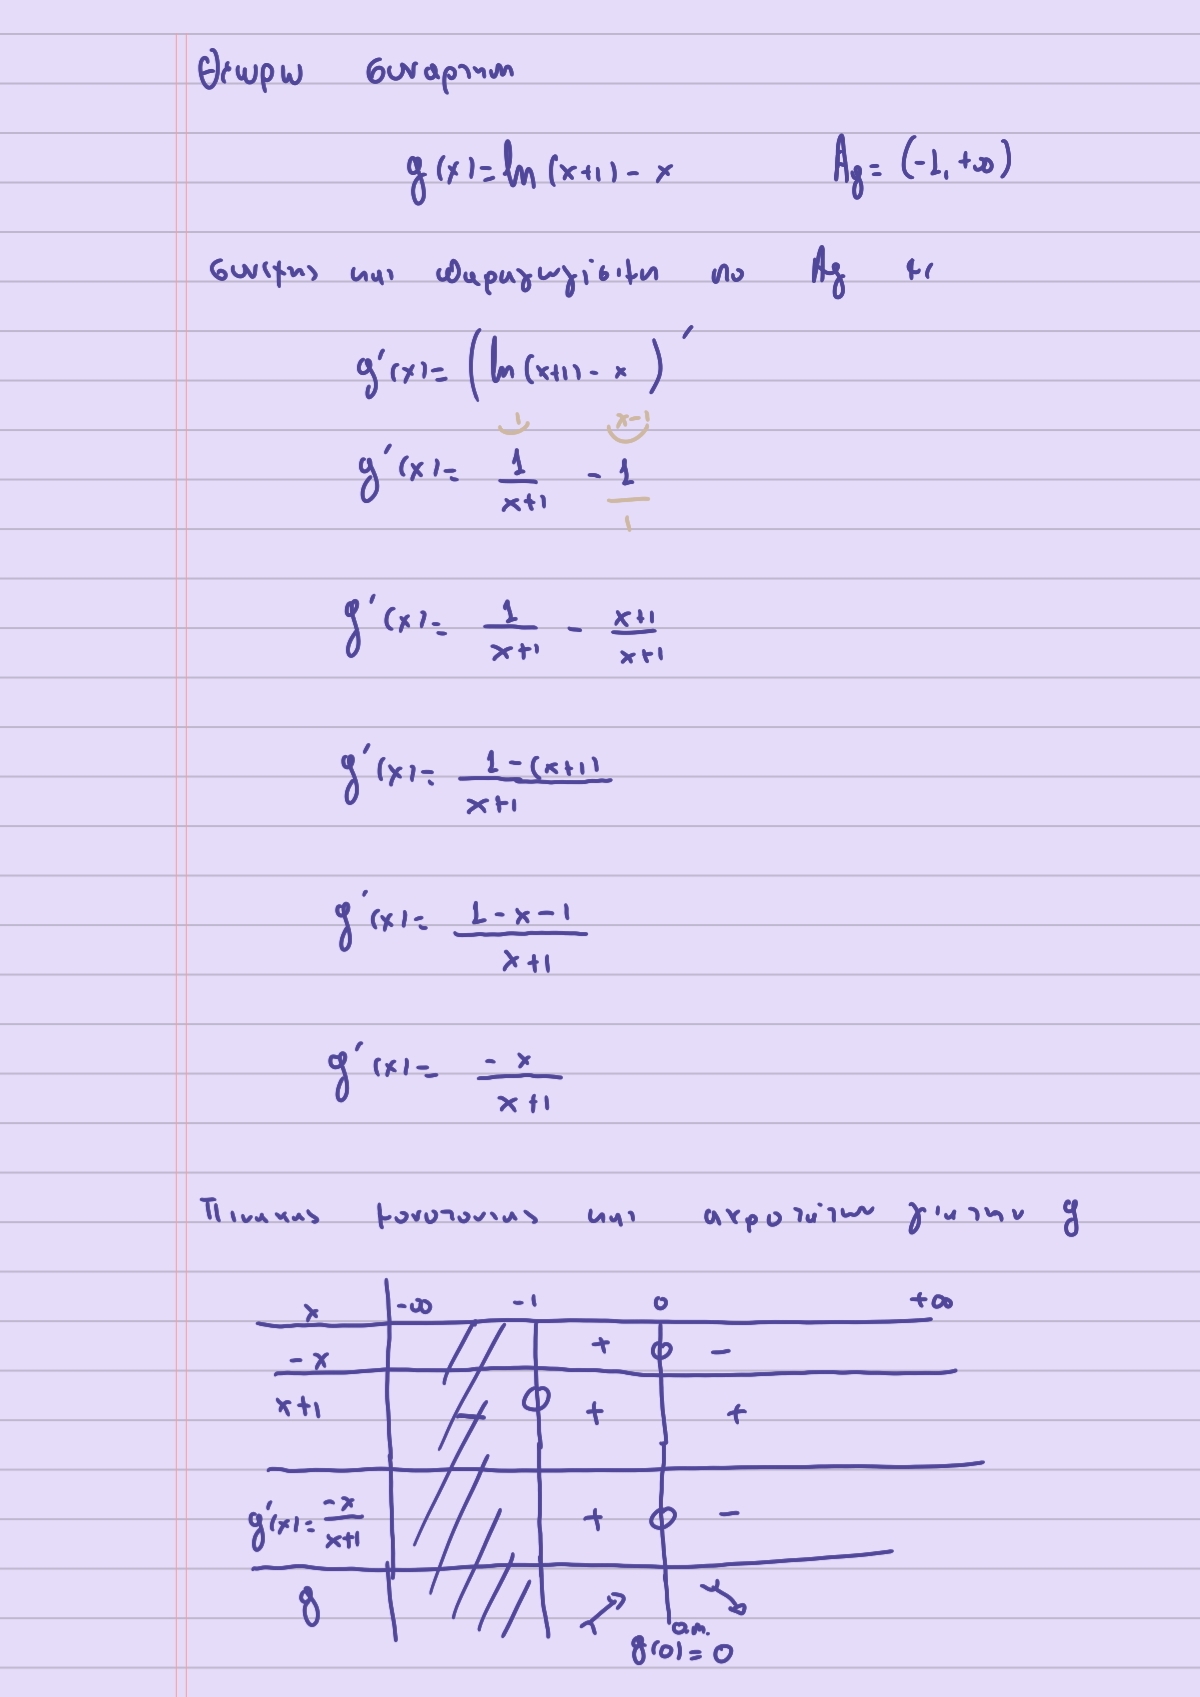 Θεωρω συναρτηση
g(x)=ln(x+1)-x A_g=(-1,+∞)
συνεχης και παραγωγισιμη στο A_g με
g'(x)=(ln(x+1)-x)'
1 x-1
g'(x)= 1/(x+1) - 1/1
g'(x)= 1/(x+1) - (x+1)/(x+1)
g'(x)= (1-(x+1))/(x+1)
g'(x)= (1-x-1)/(x+1)
g'(x)= -x/(x+1)
Πινακας μονοτονιας και ακροτατων για την g
x -∞ -1 0 +∞
-x + 0 -
x+1 - 0 + +
g'(x)= -x/(x+1) + 0 -
g ↗ ↘
g(0)=0